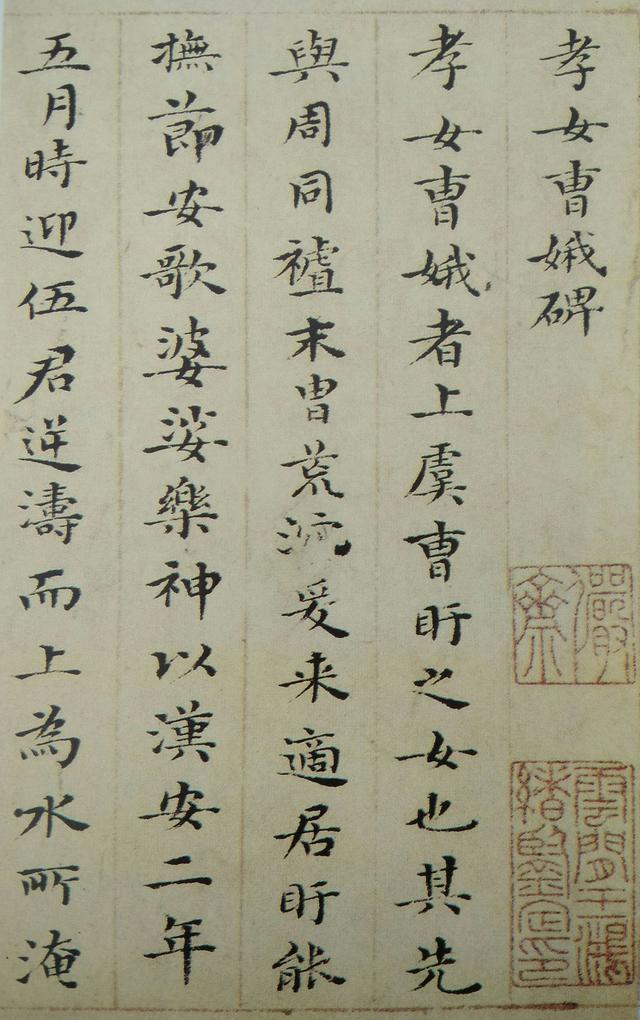 孝女曹娥碑
儼齋
雲間王鴻
緒鑒定印
孝女曹娥者上虞曹盱之女也其先
與周同祖末胄荒爰来適居盱能
撫節安歌婆娑樂神以漢安二年
五月時迎伍君逆濤而上為水所淹